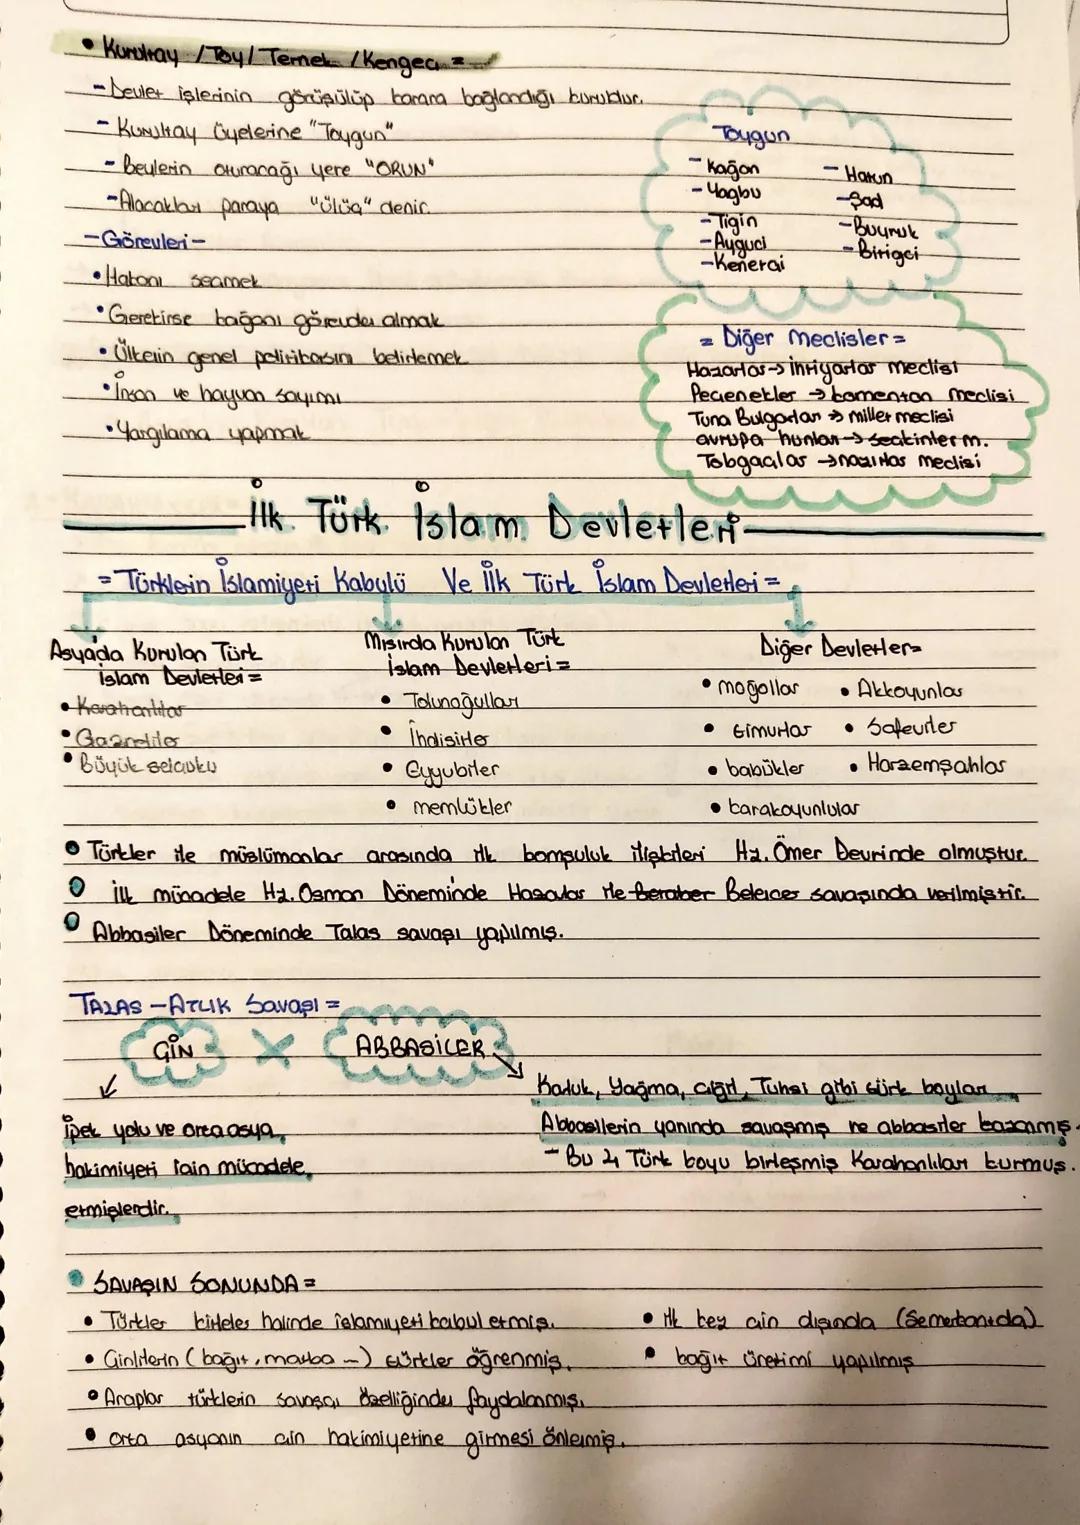 • Kurultay / Toy / Ternek / Kengeç =
- Devlet işlerinin görüşülüp karara bağlandığı kuruldur.
- Kurultay üyelerine "Toygun"
- Beylerin oturacağı yere "ORUN"
- Alacakları paraya "ülüş" denir.
- Görevleri -
• Hakanı seçmek
• Gerekirse kağanı görevden almak
• Ülkenin genel politikasını belirlemek
• İnsan ve hayvan sayımı
• Yargılama yapmak
Toygun
- Kağan - Hatun
- Yagbu - Şad
- Tigin - Buyruk
- Ayguci - Birigci
- Kenerai
= Diğer Meclisler =
Hazarlar → ihtiyarlar meclisi
Peçenekler → komenton meclisi
Tuna Bulgarları → millet meclisi
avrupa hunları → seçkinler m.
Tabgaçlar → nazırlar meclisi
İlk Türk İslam Devletleri
= Türklerin İslamiyeti Kabulü Ve İlk Türk İslam Devletleri =
Asyada Kurulan Türk İslam Devletleri =
• Karahanlılar
• Gazneliler
• Büyük selçuklu
Mısırda Kurulan Türk İslam Devletleri =
• Tolunoğulları
• İhdişitler
• Eyyubiler
• memlükler
Diğer Devletler =
• moğollar • Akkoyunlar
• timurlar • Safeviler
• babükler • Harzemşahlar
• karakoyunlular
• Türkler ile müslümanlar arasında ilk komşuluk ilişkileri Hz. Ömer Devrinde olmuştur.
• ilk mücadele Hz. Osman Döneminde Hazarlar ile beraber Belencer savaşında verilmiştir.
• Abbasiler Döneminde Talas savaşı yapılmış.
TALAS - ATLIK Savaşı =
ÇİN X ABBASİLER
ipek yolu ve orta asya
hakimiyeti için mücadele
etmişlerdir.
Karluk, Yağma, çiğil, Tuhsi gibi türk boyları
Abbasilerin yanında savaşmış ve abbasiler kazanmış.
- Bu 4 Türk boyu birleşmiş Karahanlıları kurmuş.
• SAVAŞIN SONUNDA =
• Türkler kitleler halinde islamiyeti kabul etmiş.
• Çinlilerin (kağıt, matba -) türkler öğrenmiş.
• Araplar türklerin savaşçı özelliğinden faydalanmış.
• orta asyanın çin hakimiyetine girmesi önlenmiş.
• ilk kez çin dışında (Semerkantda)
• kağıt üretimi yapılmış